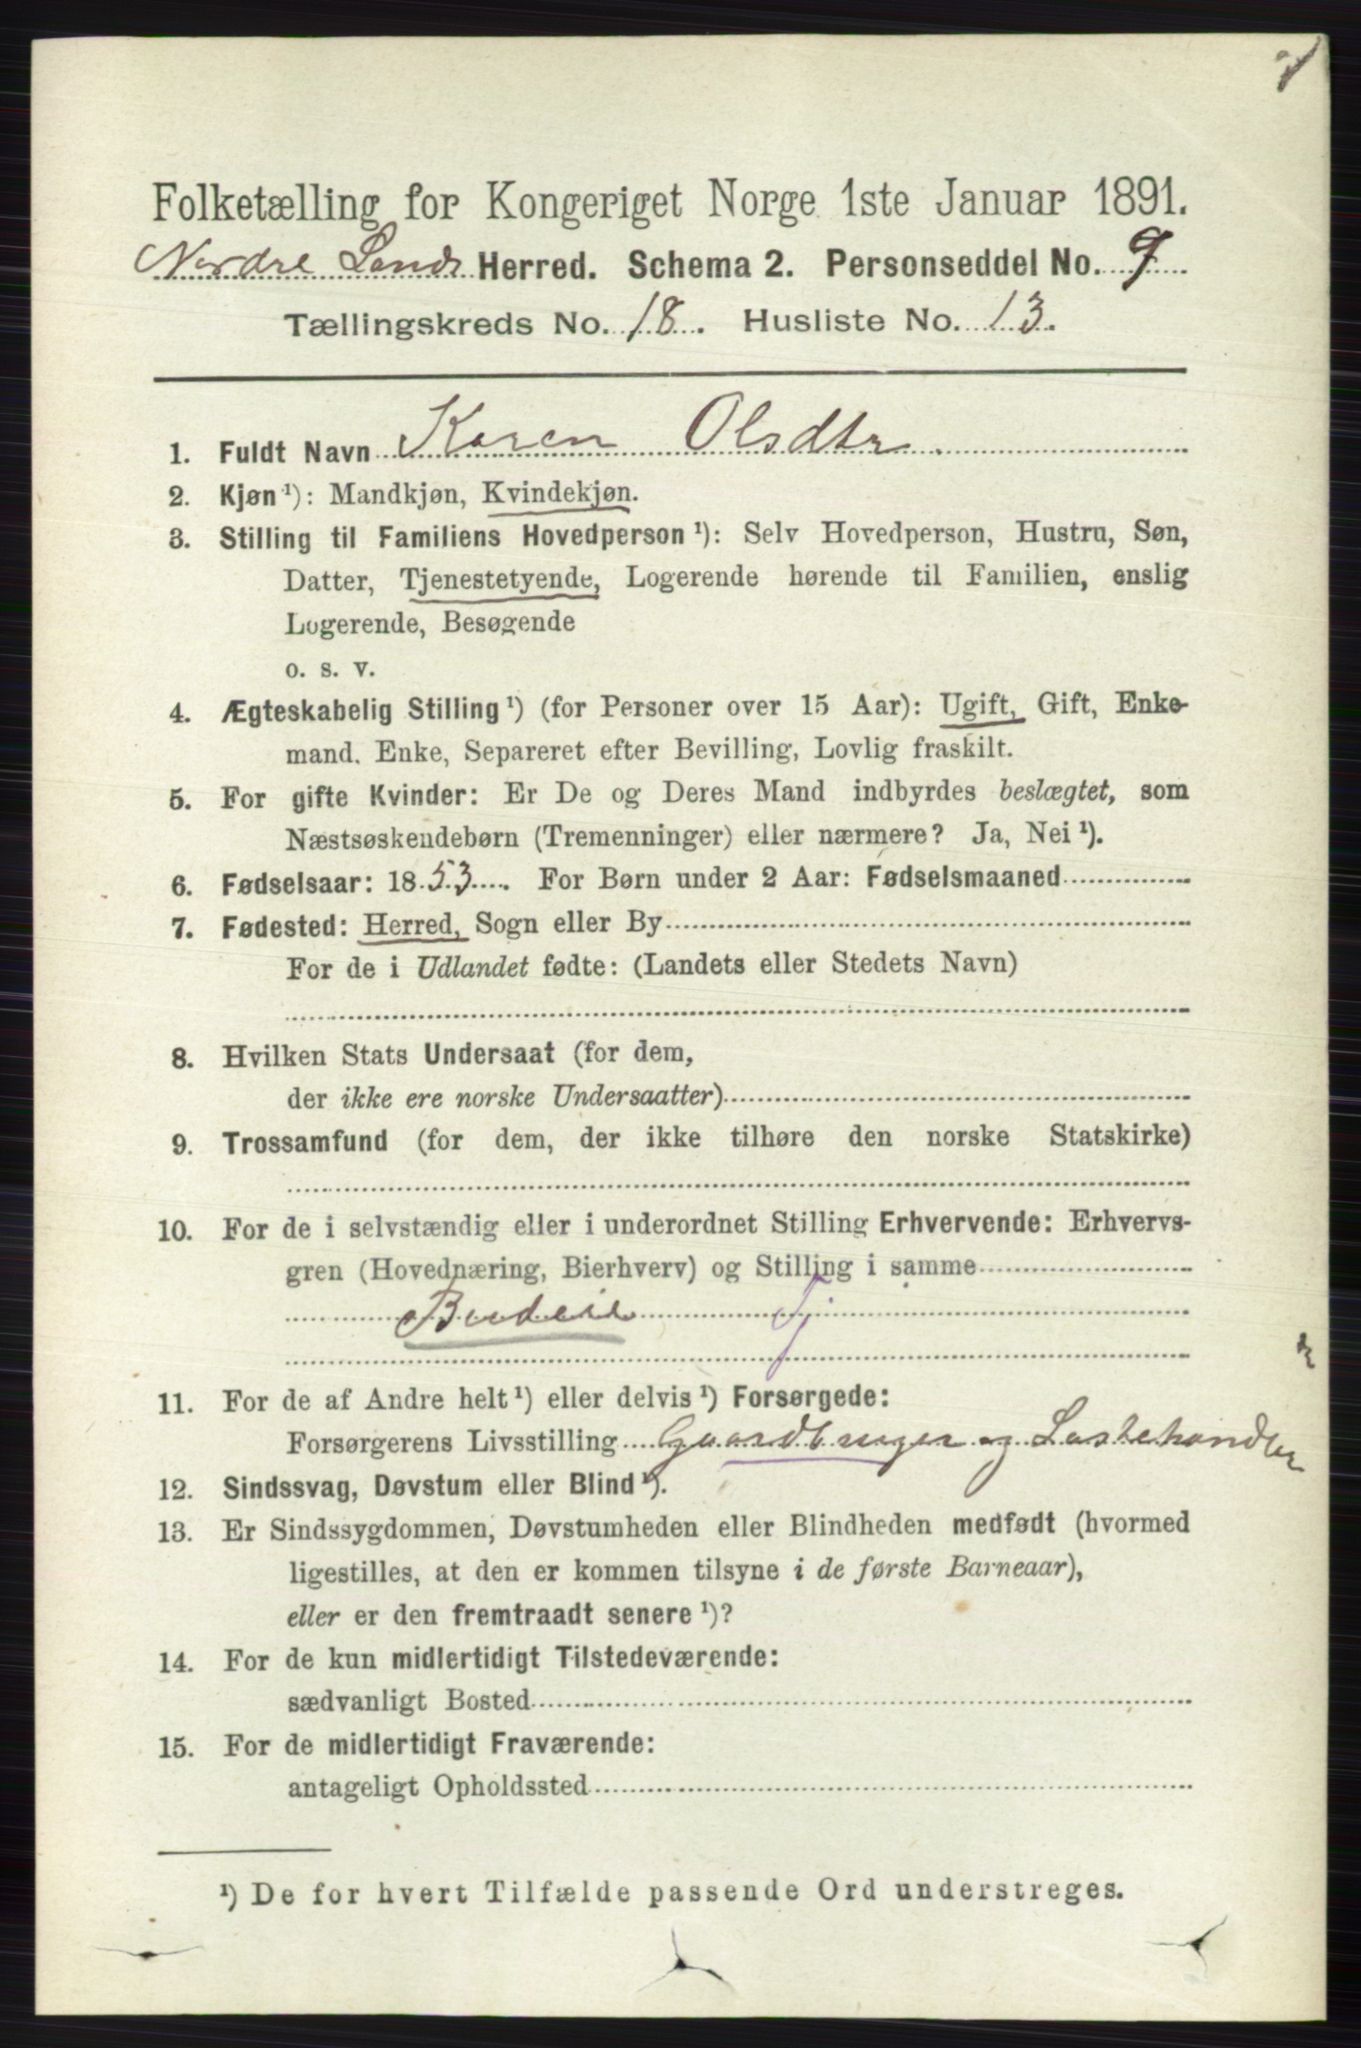 Folketælling for Kongeriget Norge 1ste Januar 1891.
Nordre Lands Herred. Schema 2. Personseddel No. 9
Tællingskreds No. 18. Husliste No. 13.
1. Fuldt Navn Karen Olsdtr.
2. Kjøn ¹): Mandkjøn, Kvindekjøn.
3. Stilling til Familiens Hovedperson ¹): Selv Hovedperson, Hustru, Søn,
Datter, Tjenestetyende, Logerende hørende til Familien, enslig
Logerende, Besøgende
o. s. v.
4. Ægteskabelig Stilling ¹) (for Personer over 15 Aar): Ugift, Gift, Enke-
mand, Enke, Separeret efter Bevilling, Lovlig fraskilt.
5. For gifte Kvinder: Er De og Deres Mand indbyrdes beslægtet, som
Næstsøskendebørn (Tremenninger) eller nærmere? Ja, Nei ¹).
6. Fødselsaar: 1853. For Børn under 2 Aar: Fødselsmaaned
7. Fødested: Herred, Sogn eller By
For de i Udlandet fødte: (Landets eller Stedets Navn)
8. Hvilken Stats Undersaat (for dem,
der ikke ere norske Undersaatter)
9. Trossamfund (for dem, der ikke tilhøre den norske Statskirke)
10. For de i selvstændig eller i underordnet Stilling Erhvervende: Erhvervs-
gren (Hovednæring, Bierhverv) og Stilling i samme
Budeie Tj
11. For de af Andre helt ¹) eller delvis ¹) Forsørgede:
Forsørgerens Livsstilling Gaardbruger og Lastehandler
12. Sindssvag, Døvstum eller Blind ¹).
13. Er Sindssygdommen, Døvstumheden eller Blindheden medfødt (hvormed
ligestilles, at den er kommen tilsyne i de første Barneaar),
eller er den fremtraadt senere ¹)?
14. For de kun midlertidigt Tilstedeværende:
sædvanligt Bosted
15. For de midlertidigt Fraværende:
antageligt Opholdssted
¹) De for hvert Tilfælde passende Ord understreges.